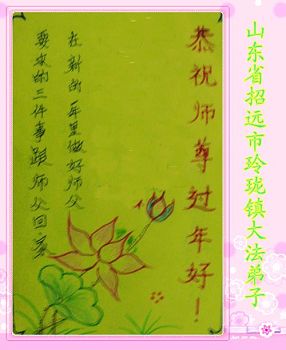 山东省招远市玲珑镇大法弟子
恭祝师尊过年好！
在新的一年里做好师父
要求的三件事跟师父回家